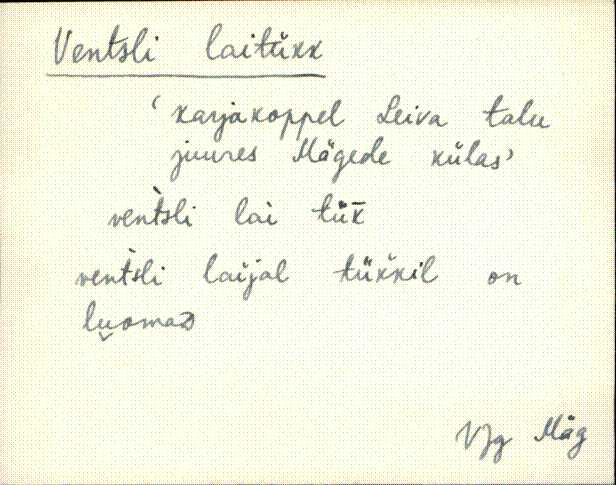 Ventsli laitükk
‘karjakoppel Leiva talu
juures Mägede külas’
vent̀sli lai tük̄
vent̀sli laijal tükkil on
lu̬omaᴅ
VJg Mäg